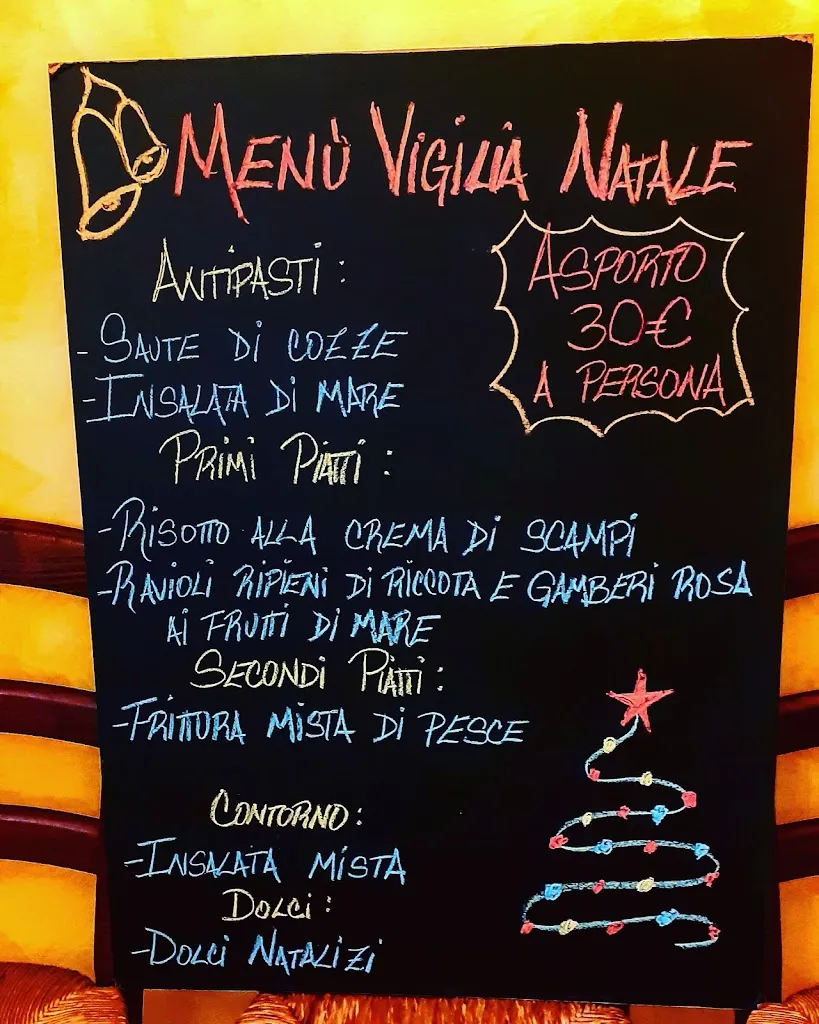 MENÙ VIGILIA NATALE
ANTIPASTI:
ASPORTO
30€
A PERSONA
-SAUTE DI COZZE
-INSALATA DI MARE
PRIMI PIATTI:
-RISOTTO ALLA CREMA DI SCAMPI
-RAVIOLI RIPIENI DI RICCOTA E GAMBERI ROSA
AI FRUTTI DI MARE
SECONDI PIATTI:
-FRITTURA MISTA DI PESCE
CONTORNO:
-INSALATA MISTA
DOLCI:
-DOLCI NATALIZI